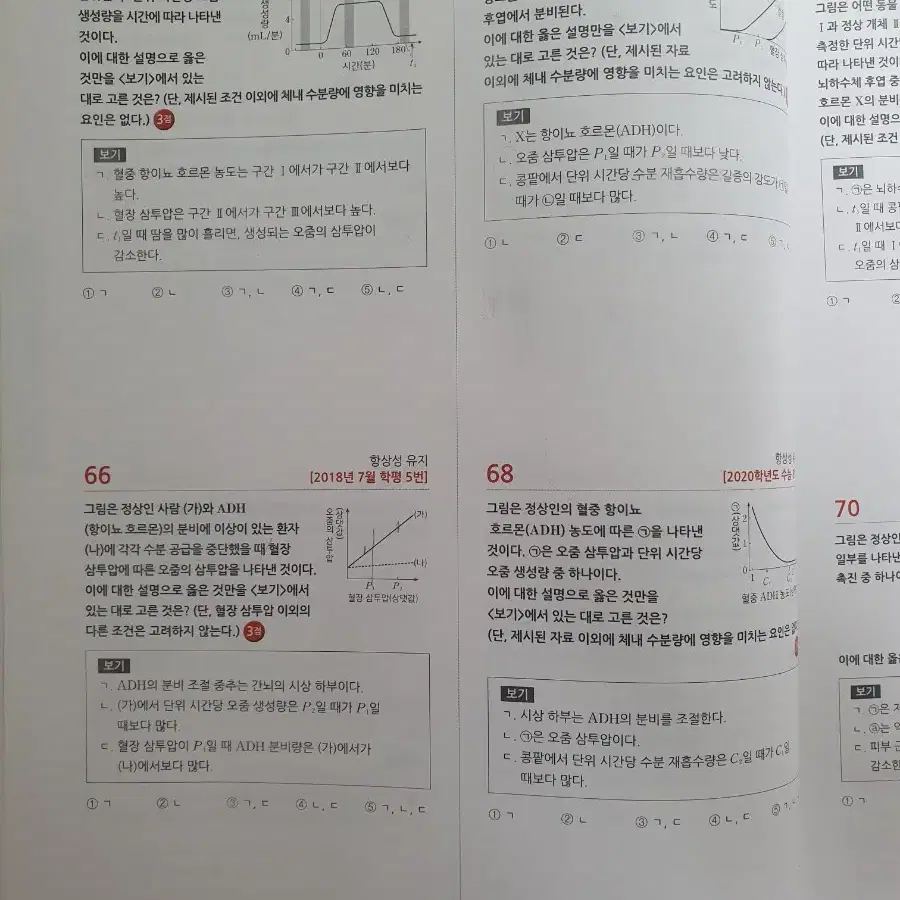 생성량을 시간에 따라 나타낸
것이다.
이에 대한 설명으로 옳은
것만을 <보기>에서 있는
대로 고른 것은? (단, 제시된 조건 이외에 체내 수분량에 영향을 미치는
요인은 없다.) 3점
생성량
(mL/분)
4
0
0 60 120 180
t₁
시간(분)
보기
ㄱ. 혈중 항이뇨 호르몬 농도는 구간 Ⅰ에서가 구간 Ⅱ에서보다
높다.
ㄴ. 혈장 삼투압은 구간 Ⅱ에서가 구간 Ⅲ에서보다 높다.
ㄷ. t₁일 때 땀을 많이 흘리면, 생성되는 오줌의 삼투압이
감소한다.
① ㄱ ② ㄴ ③ ㄱ, ㄴ ④ ㄱ, ㄷ ⑤ ㄴ, ㄷ
66
항상성 유지
[2018년 7월 학평 5번]
그림은 정상인 사람 (가)와 ADH
(항이뇨 호르몬)의 분비에 이상이 있는 환자
(나)에 각각 수분 공급을 중단했을 때 혈장
삼투압에 따른 오줌의 삼투압을 나타낸 것이다.
이에 대한 설명으로 옳은 것만을 <보기>에서
있는 대로 고른 것은? (단, 혈장 삼투압 이외의
다른 조건은 고려하지 않는다.) 3점
오줌의 삼투압
(상댓값)
(가)
(나)
P₁ P₂
혈장 삼투압(상댓값)
보기
ㄱ. ADH의 분비 조절 중추는 간뇌의 시상 하부이다.
ㄴ. (가)에서 단위 시간당 오줌 생성량은 P₂일 때가 P₁일
때보다 많다.
ㄷ. 혈장 삼투압이 P₁일 때 ADH 분비량은 (가)에서가
(나)에서보다 많다.
① ㄱ ② ㄴ ③ ㄱ, ㄷ ④ ㄴ, ㄷ ⑤ ㄱ, ㄴ, ㄷ
후엽에서 분비된다.
이에 대한 옳은 설명만을 <보기>에서
있는 대로 고른 것은? (단, 제시된 자료
이외에 체내 수분량에 영향을 미치는 요인은 고려하지 않는다.)
도
P₁ P₂
보기
ㄱ. X는 항이뇨 호르몬(ADH)이다.
ㄴ. 오줌 삼투압은 P₁일 때가 P₂일 때보다 낮다.
ㄷ. 콩팥에서 단위 시간당 수분 재흡수량은 갈증의 강도가 ㉠일
때가 ㉡일 때보다 많다.
① ㄴ ② ㄷ ③ ㄱ, ㄴ ④ ㄱ, ㄷ ⑤ ㄱ,
68
항상성
[2020학년도 수능
그림은 정상인의 혈중 항이뇨
호르몬(ADH) 농도에 따른 ㉠을 나타낸
것이다. ㉠은 오줌 삼투압과 단위 시간당
오줌 생성량 중 하나이다.
이에 대한 설명으로 옳은 것만을
<보기>에서 있는 대로 고른 것은?
(단, 제시된 자료 이외에 체내 수분량에 영향을 미치는 요인은
㉠(상댓값)
2
1
0
1 C₁
혈중 ADH 농도
보기
ㄱ. 시상 하부는 ADH의 분비를 조절한다.
ㄴ. ㉠은 오줌 삼투압이다.
ㄷ. 콩팥에서 단위 시간당 수분 재흡수량은 C₂일 때가 C₁일
때보다 많다.
① ㄱ ② ㄴ ③ ㄱ, ㄷ ④ ㄴ, ㄷ ⑤ ㄱ, ㄴ
그림은 어떤 동물
Ⅰ과 정상 개체 Ⅱ
측정한 단위 시간
따라 나타낸 것이
뇌하수체 후엽 중
호르몬 X의 분비
이에 대한 설명으
(단, 제시된 조건
보기
ㄱ. ㉠은 뇌하수
ㄴ. t₁일 때 콩
Ⅱ에서보다
ㄷ. t₁일 때 Ⅰ
오줌의 삼
① ㄱ ②
70
그림은 정상인
일부를 나타낸
촉진 중 하나
이에 대한 옳은
보기
ㄱ. ㉠은
ㄴ. ⓐ는
ㄷ. 피부 근
감소한
① ㄱ